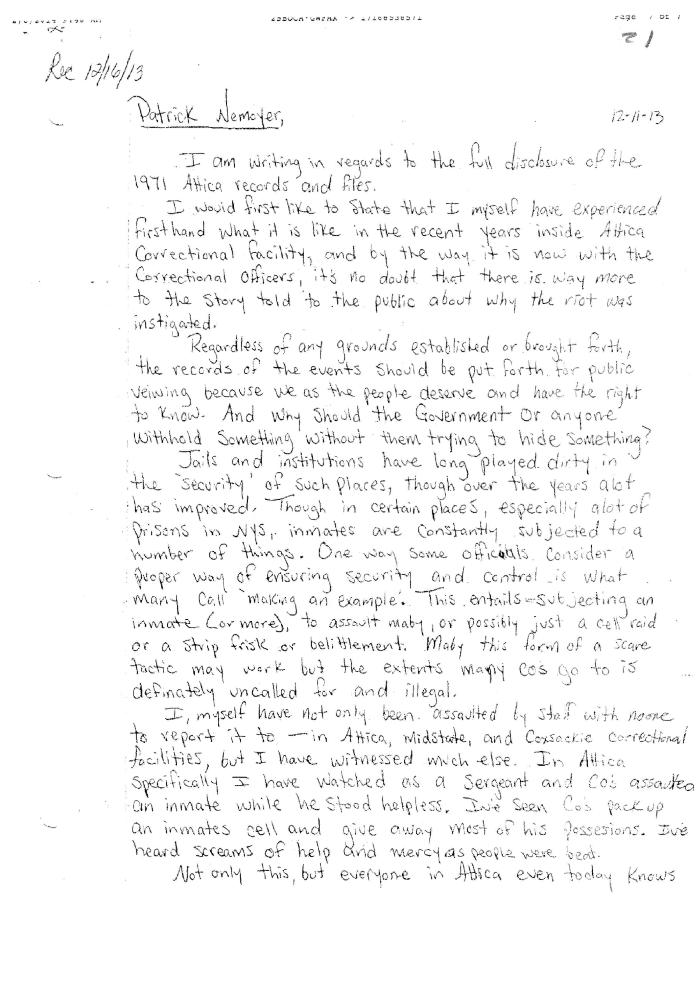 Page 7 of 7
21
Rec 12/16/13
Patrick Nemoyer,
12-11-13
I am writing in regards to the full disclosure of the
1971 Attica records and files.
I would first like to State that I myself have experienced
firsthand what it is like in the recent years inside Attica
Correctional facility, and by the way it is now with the
Correctional Officers, it's no doubt that there is way more
to the Story told to the public about why the riot was
instigated.
Regardless of any grounds established or brought forth,
the records of the events should be put forth for public
veiwing because we as the people deserve and have the right
to know. And why should the Government or anyone
withhold Something without them trying to hide Something?
Jails and institutions have long played dirty in
the 'security' of such places, though over the years alot
has improved. Though in certain places, especially alot of
prisons in NYS, inmates are constantly subjected to a
number of things. One way some officials consider a
proper way of ensuring security and control is what
many call 'making an example'. This entails-subjecting an
inmate (or more), to assault maby, or possibly just a cell raid
or a strip frisk or belittlement. Maby this form of a scare
tactic may work but the extents many cos go to is
definately uncalled for and illegal.
I, myself have not only been assaulted by staff with noone
to report it to — in Attica, Midstate, and Coxsackie correctional
facilities, but I have witnessed much else. In Attica
specifically I have watched as a Sergeant and Co's assaulted
an inmate while he stood helpless. I've seen Co's pack up
an inmates cell and give away most of his possesions. I've
heard screams of help and mercy as people were beat.
Not only this, but everyone in Attica even today knows